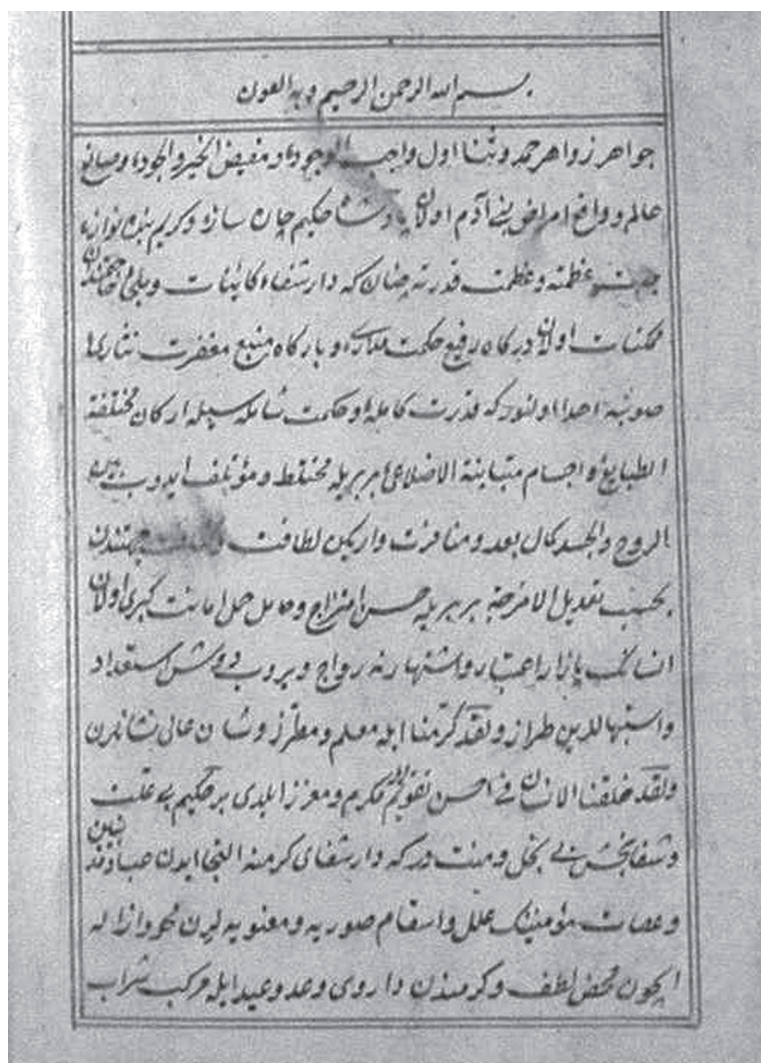 بسم الله الرحمن الرحيم وبه العون
جواهر زواهر حمد وثنا اول واجب الوجود ومفيض الخير والجود وصانع
عالم ودافع امراض بني آدم اولان پادشاه حكيم چاره ساز وكريم بنده نوازه
عظمته وعظمت قدرته حضرتلرينك كه دار شفاء كائنات
ممكنات اولان درگاه رفيع حكمت مدارى وبارگاه منيع مغفرت نثارى
صوبنه اهدا اولنور كه قدرت كامله وحكمت شامله سيله اركان مختلفة
الطبايع واجسام متباينة الاضلاعى بربريله مختلط ومؤتلف ايدوب بين
الروح والجسد كمال بعد ومنافرت واريكن لطافت وكثافت جهتندن
بحسب تعديل الامزجه بربريله حسن امتزاج وحامل حمل امانت كبرى اولان
انسانك بازار اعتبار واشتهارنه رواج ويروب دوش استعداد
وابتهالدين طراز ولقد كرمنا ايله معلم ومطرز وشان عالى نشانلرن
ولقد خلقنا الانسان فى احسن تقويم ايله مكرم ومعزز ايلدى بر حكيم بى علت
وشفابخش بى بخل ومنتدر كه دار شفاى كرمنه التجا ايدن عباد
وعصات مؤمنينك علل واسقام صوريه ومعنويه لرين محو وازاله
ايچون محض لطف وكرمندن داروى وعد وعيد ايله مركب شراب